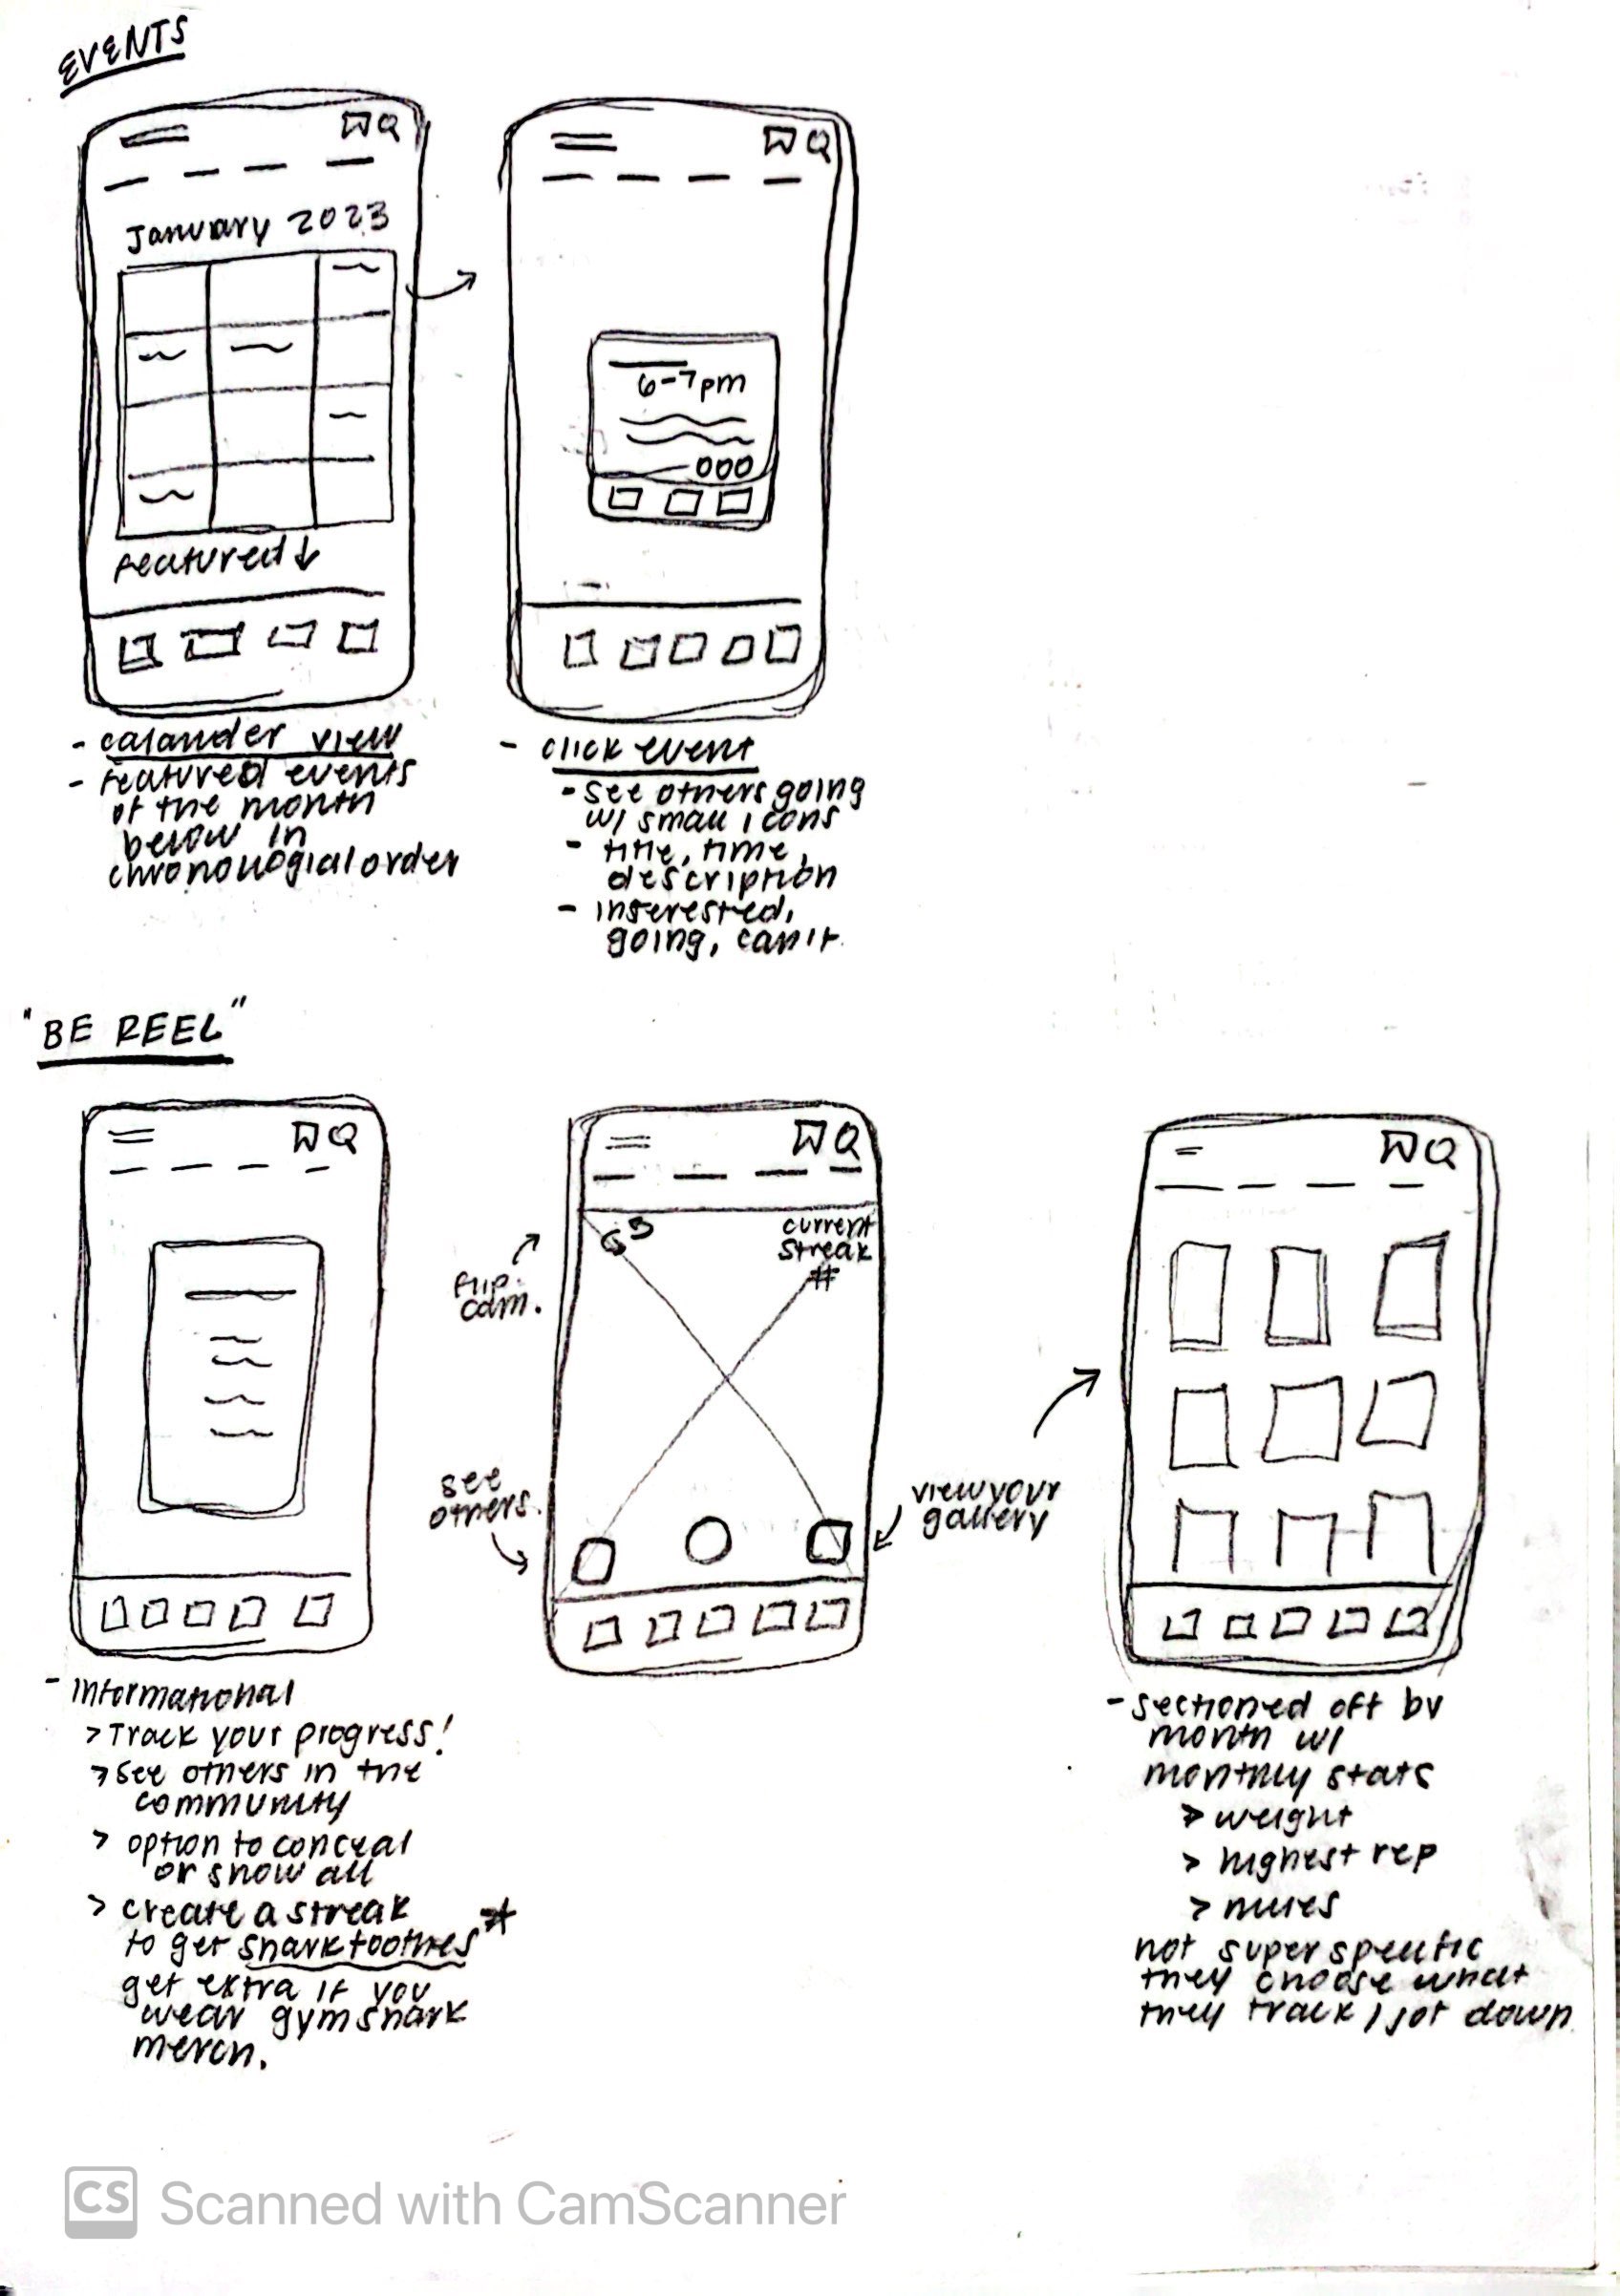 EVENTS
January 2023
featured ↓
6-7pm
- calander view
- featured events
of the month
below in
chronoligial order
- click event
- see others going
w/ small icons
- title, time,
description
- interested,
going, can't.
"BE REEL"
flip
cam.
current
streak
#
see
others.
view your
gallery
- informational
> Track your progress!
> see others in the
community
> option to conceal
or show all
> create a streak *
to get sharktoothies
get extra if you
wear gymshark
merch.
- sectioned off by
month w/
monthly stats
> weight
> highest rep
> miles
not super specific
they choose what
they track / jot down
CS Scanned with CamScanner